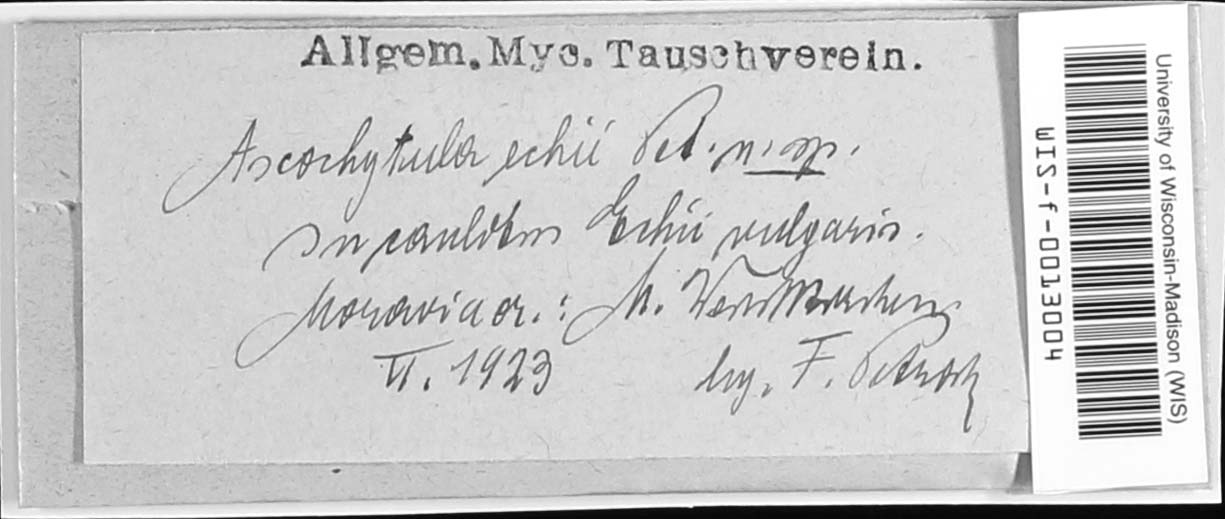 Allgem. Myc. Tauschverein.
Ascochytula echii Pet. n. sp.
In caulibus Echii vulgaris.
Moravia or.: M.
VI. 1923 leg. F. Petrak
University of Wisconsin-Madison (WIS)
WIS-f-0013004